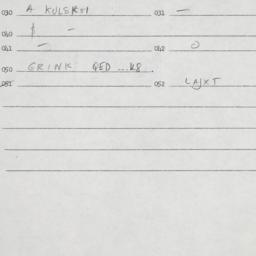 030 A KULSRTI 031 —
040 $ —
041 — 042 O
050 GRINK GED ...KS...
051 052 LAJXT